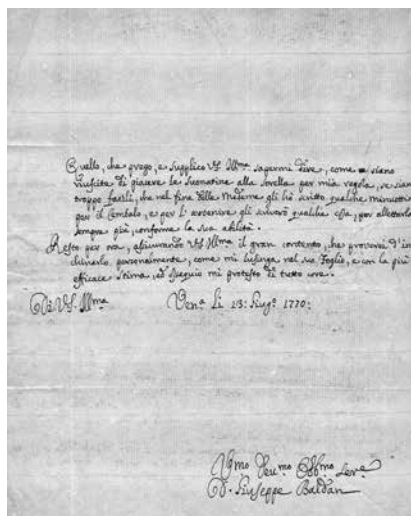 Quello, che prego, e supplico VS. Ill.ma sapermi dire, come siano
riuscite di piacere le Suonatine alla Sorella per mia regola, se sian
troppo facili, che nel fine delle Medeme gli hò scritto qualche Minuetto
per il Cembalo, e per l'avvenire gli scriverò qualche cosa, per allettarla
sempre più, conforme la sua abilità.
Resto per ora, assicurando VS. Ill.ma il gran contento, che proverei d'in
chinarlo personalmente, come mi lusinga nel suo Foglio, e con la più
efficace stima, ed ossequio mi protesto di tutto core.
Di VS. Ill.ma Ven.a Li 13: Giug.o 1770:
Um.mo Dev.mo Obb.mo Serv.e
D. Giuseppe Baldan